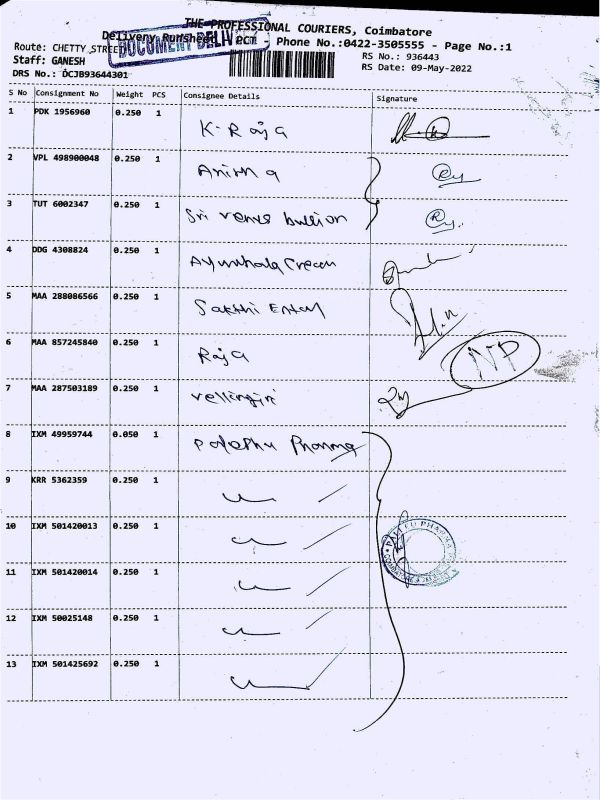 THE PROFESSIONAL COURIERS, Coimbatore
Delivery Runsheet PCT - Phone No.:0422-3505555 - Page No.:1
DOCUMENT DELIV
Route: CHETTY STREET
RS No.: 936443
Staff: GANESH
RS Date: 09-May-2022
DRS No.: DCJB93644301
S No Consignment No Weight PCS Consignee Details Signature
1 PDK 1956960 0.250 1 K. Raja
2 VPL 498900048 0.250 1
3 TUT 6002347 0.250 1 Sri venus bullion
4 DDG 4308824 0.250 1
5 MAA 288086566 0.250 1 Sakthi
6 MAA 857245840 0.250 1 Raja NP
7 MAA 287503189 0.250 1 vellingiri
8 IXM 49959744 0.050 1 Pharma
9 KRR 5362359 0.250 1
10 IXM 501420013 0.250 1
11 IXM 501420014 0.250 1
12 IXM 50025148 0.250 1
13 IXM 501425692 0.250 1